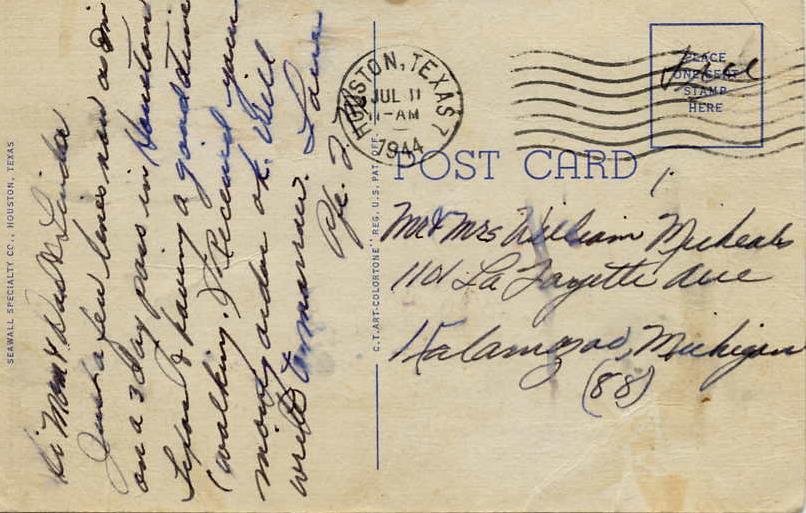 Hi Mom & Dad & Linda
Just a few lines now as Im
on a 3 day pass in Houston
Texas & having a good time
(walking. I Received your
money order ok. Will
write tomorrow. Love
Pfc.
SEAWALL SPECIALTY CO., HOUSTON, TEXAS
C.T.ART-COLORTONE" REG. U.S. PAT. OFF.
HOUSTON, TEXAS 7
JUL 11
11-AM
1944
PLACE
ONE CENT
STAMP
HERE
Free
POST CARD
Mr & Mrs William Micheals
1101 La Fayette Ave
Kalamazoo, Michigan
(88)